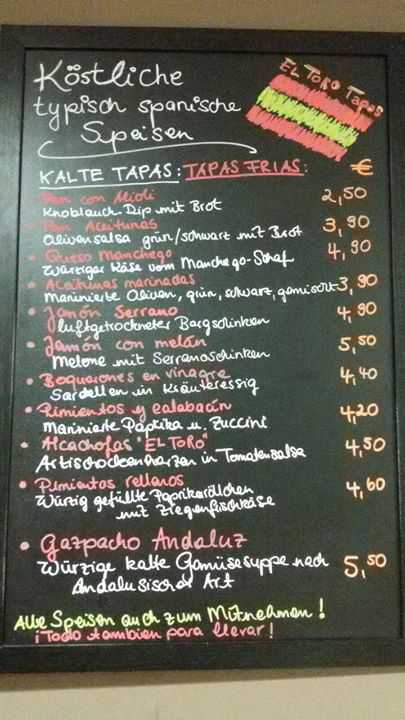 Köstliche
typisch spanische
Speisen
EL TORO Tapas
KALTE TAPAS: TAPAS FRIAS: €
Pan con Alioli 2,50
Knoblauch-Dip mit Brot
Pan Aceitunas 3,90
Olivensalsa grün/schwarz mit Brot
Queso Manchego 4,90
Würziger Käse vom Manchego-Schaf
Aceitunas marinadas 3,90
Marinierte Oliven, grün, schwarz, gemischt
Jamón Serrano 4,90
luftgetrockneter Bergschinken
Jamón con melón 5,50
Melone mit Serranoschinken
Boquerones en vinagre 4,40
Sardellen in Kräuteressig
Pimientos y calabacín 4,20
Marinierte Paprika u. Zuccini
Alcachofas "EL TORO" 4,50
Artischockenherzen in Tomatensalsa
Pimientos rellenos 4,60
Würzig gefüllte Paprikaröllchen
mit Ziegenfrischkäse
Gazpacho Andaluz
Würzige kalte Gemüsesuppe nach 5,50
Andalusischer Art
Alle Speisen auch zum Mitnehmen!
¡Todo tambien para llevar!